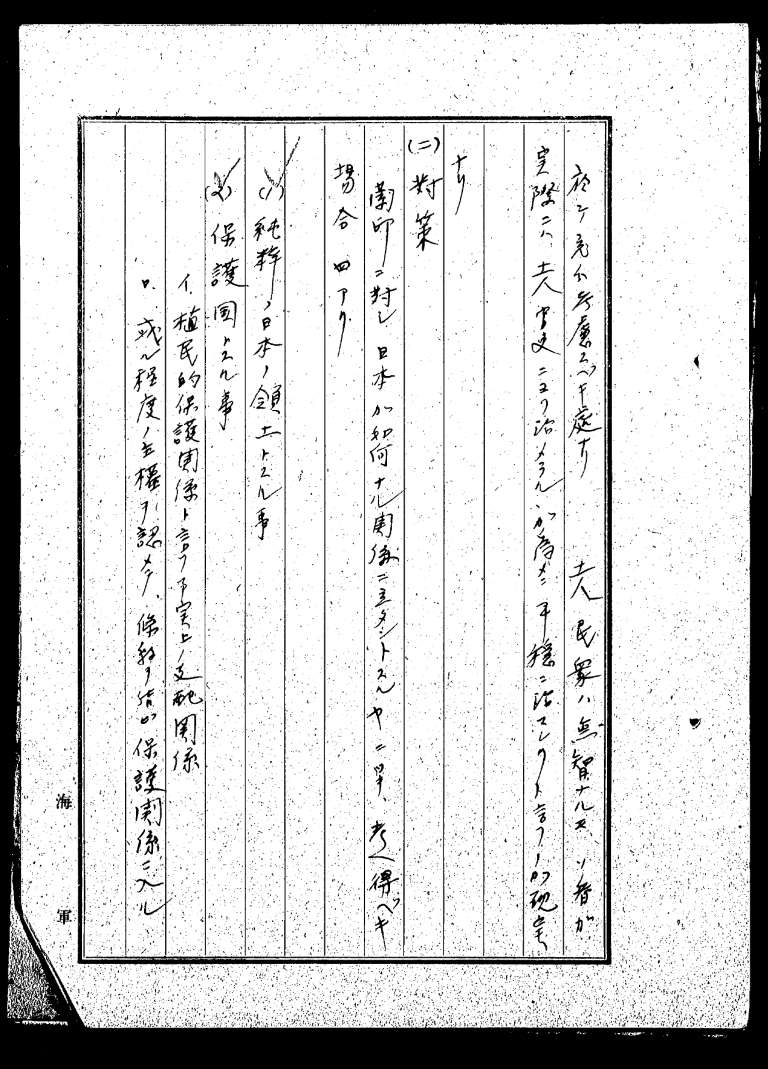 於テ充分考慮スベキ處ナリ 土人民衆ハ無智ナルモ、ソノ者ガ
実際ニハ、土人官吏ニヨリ治メラルヽガ為メニ平穏ニ治マレリト言フノガ現実
ナリ
(二)対策
蘭印ニ対シ日本ガ如何ナル関係ニ立タントスルヤニ早、考ヘ得ベキ
場合四アリ
(1)純粋ノ日本ノ領土トスル事
(2)保護国トスル事
イ、植民的保護関係ト言フ事実上ノ支配関係
ロ、或ル程度ノ主権ヲ認メテ、條約ヲ結ビ保護関係ニ入ル
海軍